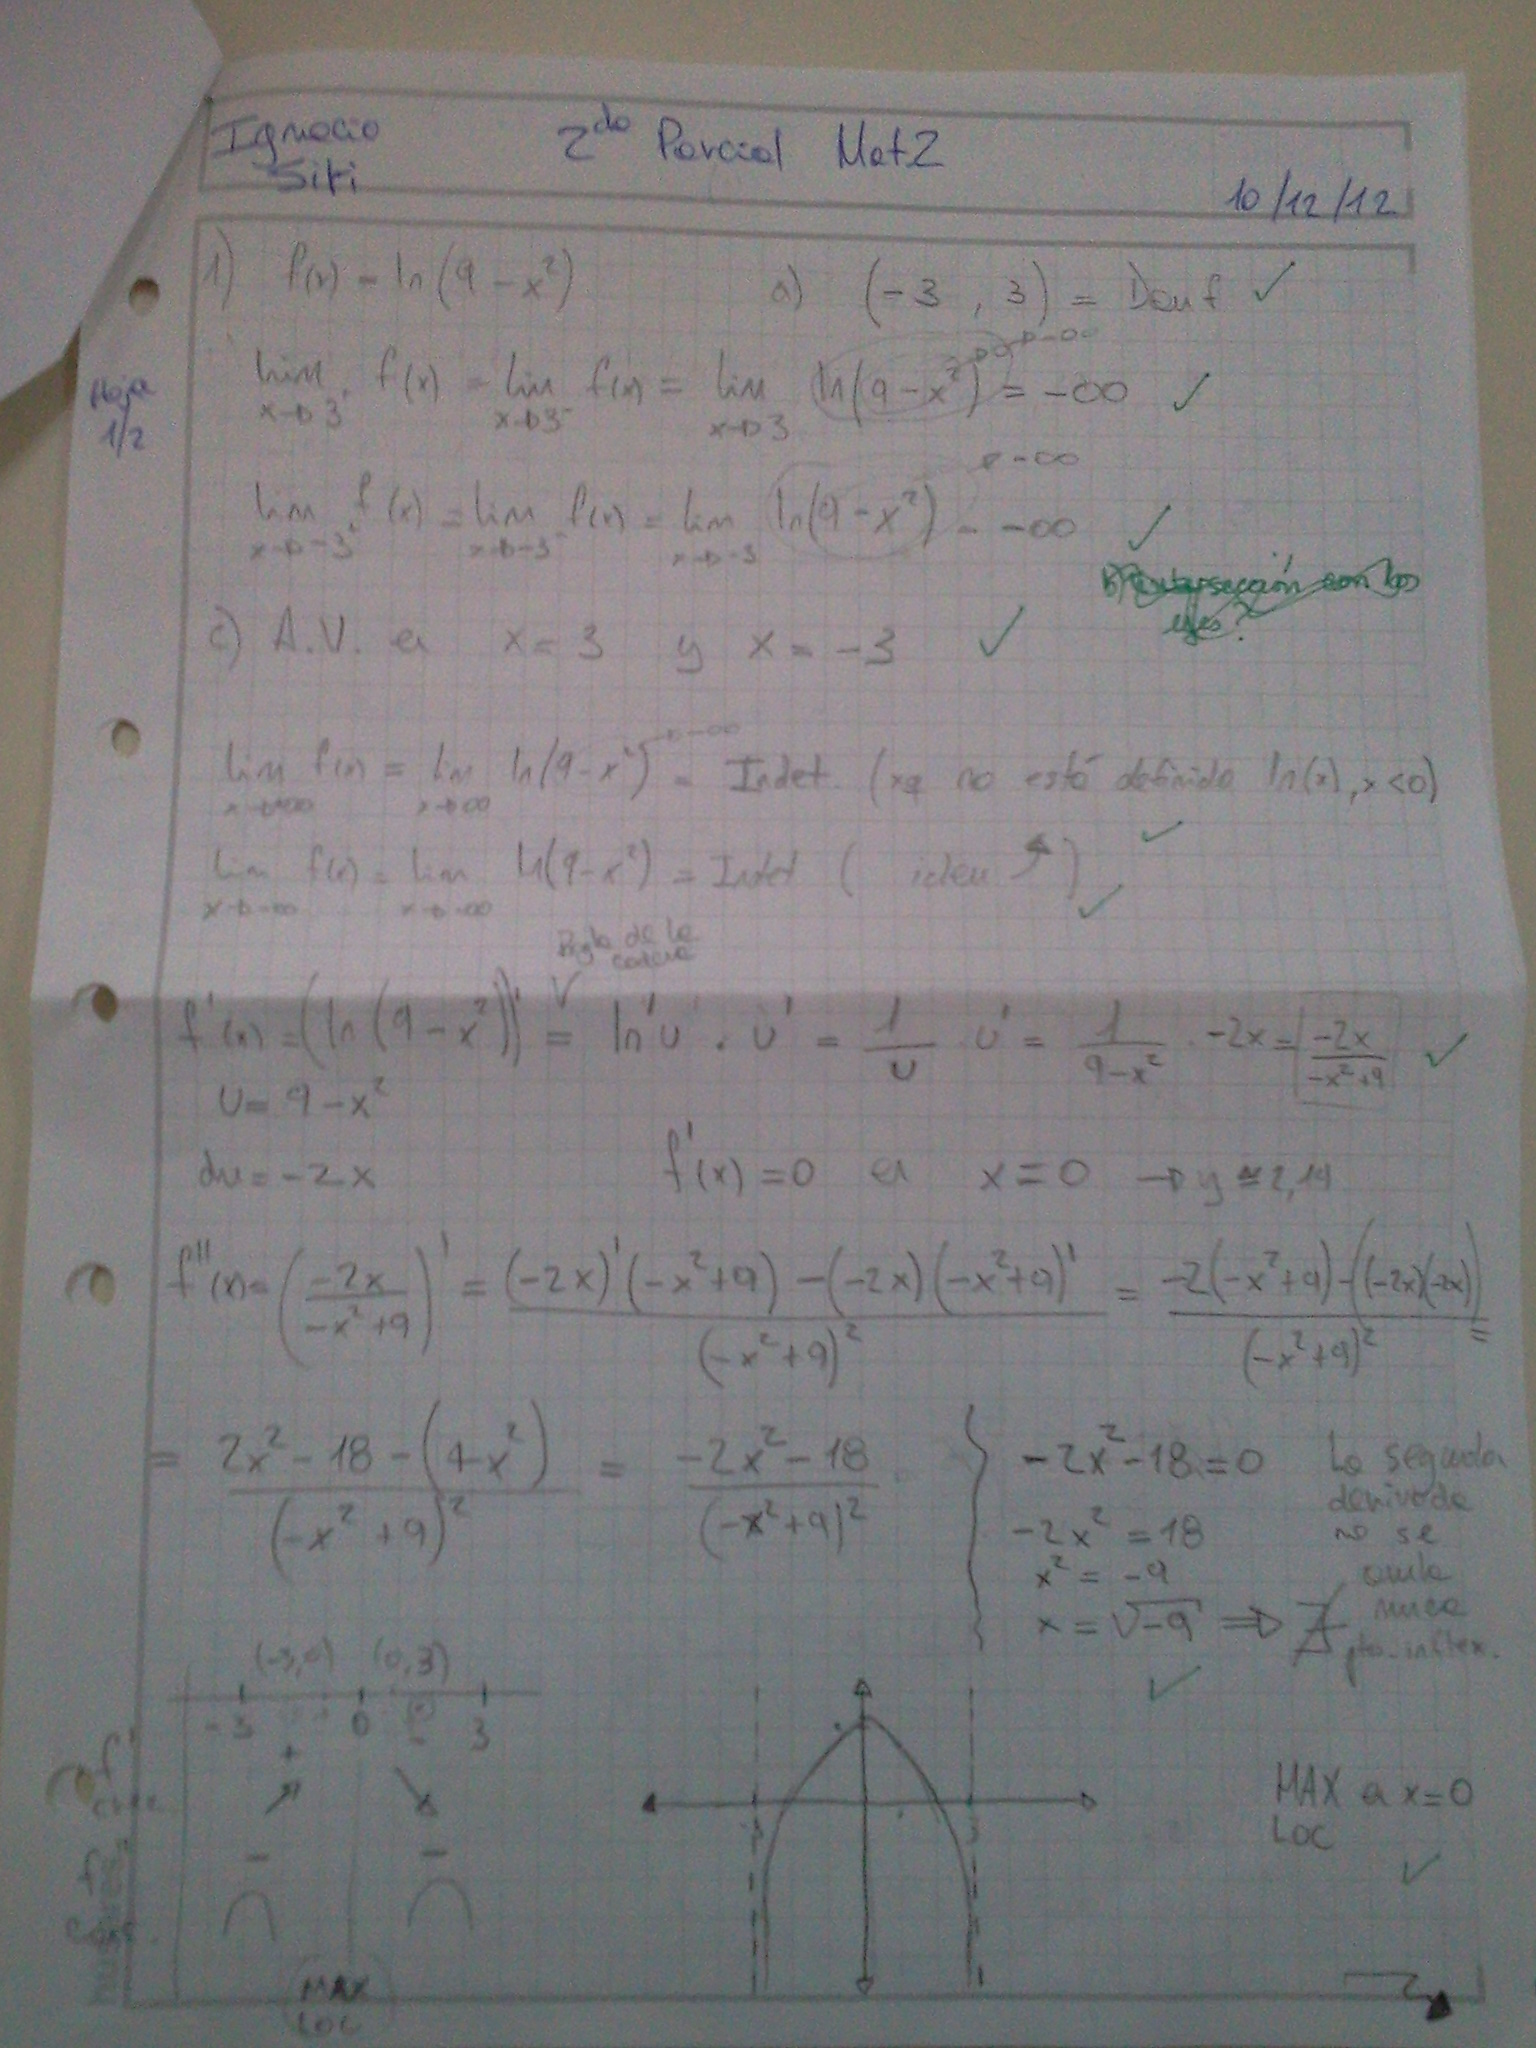 Ignacio 2do Parcial Mat2
Siri
10/12/12
Hoja
1/2
1) f(x) = ln(9-x²) a) (-3, 3) = Dom f ✓
lim x→3⁺ f(x) = lim x→3⁻ f(x) = lim x→3 ln(9-x²) = -∞ ✓
→-∞
lim x→-3⁺ f(x) = lim x→-3⁻ f(x) = lim x→-3 ln(9-x²) = -∞ ✓
b) intersección con los
ejes?
c) A.V. en x = 3 y x = -3 ✓
lim x→+∞ f(x) = lim x→∞ ln(9-x²)→-∞ = Indet. (xq no está definido ln(x), x<0) ✓
lim x→-∞ f(x) = lim x→-∞ ln(9-x²) = Indet ( idem ↗ ) ✓
Regla de la
cadena
f'(x) = (ln(9-x²))' = ln'u · u' = 1/u · u' = 1/(9-x²) · -2x = -2x/(-x²+9) ✓
u = 9-x²
du = -2x f'(x) = 0 en x = 0 → y ≅ 2,19
f''(x) = (-2x/(-x²+9))' = ((-2x)'(-x²+9) - (-2x)(-x²+9)')/(-x²+9)² = (-2(-x²+9) - ((-2x)(-2x)))/(-x²+9)² =
= (2x² - 18 - (4x²))/(-x²+9)² = (-2x² - 18)/(-x²+9)²
-2x² - 18 = 0
-2x² = 18
x² = -9
x = √-9 ⇒ ∄
La segunda
derivada
no se
anula
nunca
pto. inflex. ✓
(-3,0) (0,3)
-3 0 3
f' +
crec. ↗ ↘
f'' - -
MAX
LOC
-3 3
MAX en x=0
LOC ✓